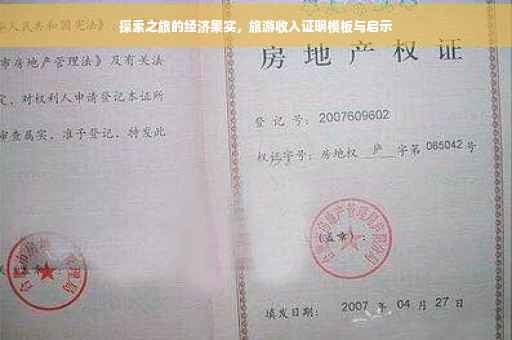 探索之旅的经济果实，旅游收入证明模板与启示
人民共和国宪法》
市房地产管理法》及有关
定，对权利人申请登记本证所
审查属实，准予登记，特发此
房地产权证
登记号：2007609602
权证字号：房地权 庐 字第 085042 号
(盖章)：
填发日期： 2007 年 04 月 27 日